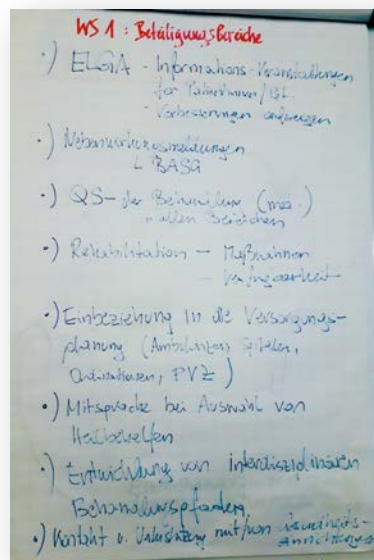 WS 1: Beteiligungsbereiche
•) ELGA - Informations-Veranstaltungen
für PatientInnen /
- Verbesserungen anfragen
•) Nebenwirkungsmeldungen
↳ BASG
•) QS - der Behandlung (med.)
in allen Bereichen
•) Rehabilitation - Maßnahmen
- Verfügbarkeit
•) Einbeziehung in die Versorgungs-
planung (Ambulanzen, Spitäler,
Ordinationen, PVZ)
•) Mitsprache bei Auswahl von
Heilbehelfen
•) Entwicklung von interdisziplinären
Behandlungspfaden
•) Kontakt u. Unterstützung mit/von